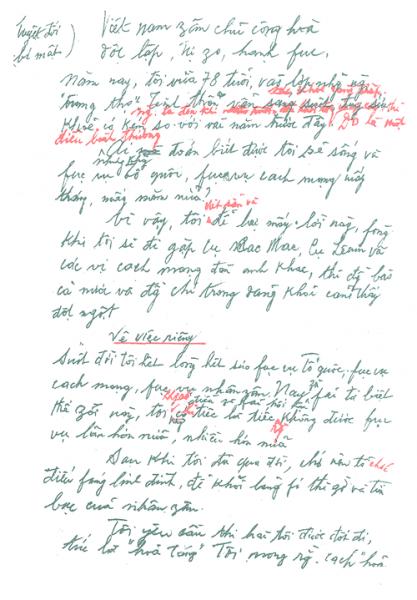 Tuyệt đối
bí mật
Việt nam zân chủ cộng hoà
độc lập, tự zo, hạnh fúc.
Năm nay, tôi vừa 78 tuổi, vào lớp những ng
"trung thọ". Tinh thần vẫn sáng suốt, tuy sức
khoẻ có kém so với vài năm trước đây. Đó là một
điều bình thường
đoán biết được tôi sẽ sống và
fục vụ tổ quốc, fục vụ cách mạng mấy
tháng, mấy năm nữa?
Vì vậy, tôi viết sẵn và để lại mấy lời này, fòng
khi tôi sẽ đi gặp Cụ Các Mác, Cụ Lênin và
các vị cách mạng đàn anh khác, thì đ/b
cả nước và đ/c trong đảng khỏi cảm thấy
đột ngột.
Về việc riêng
Suốt đời tôi hết lòng hết sức fục vụ Tổ quốc, fục vụ
cách mạng, fục vụ nhân zân. Nay zù fải từ biệt
thế zới này, tôi không có điều gì fải hối hận, chỉ tiếc là tiếc không được fục
vụ lâu hơn nữa, nhiều hơn nữa
Sau khi tôi đã qua đời, chớ nên tổ chức
điếu fúng linh đình, để khỏi lãng fí thì giờ và tiền
bạc của nhân zân.
Tôi yêu cầu thi hài tôi được đốt đi,
tức là "hoả táng". Tôi mong rằng cách "hoả